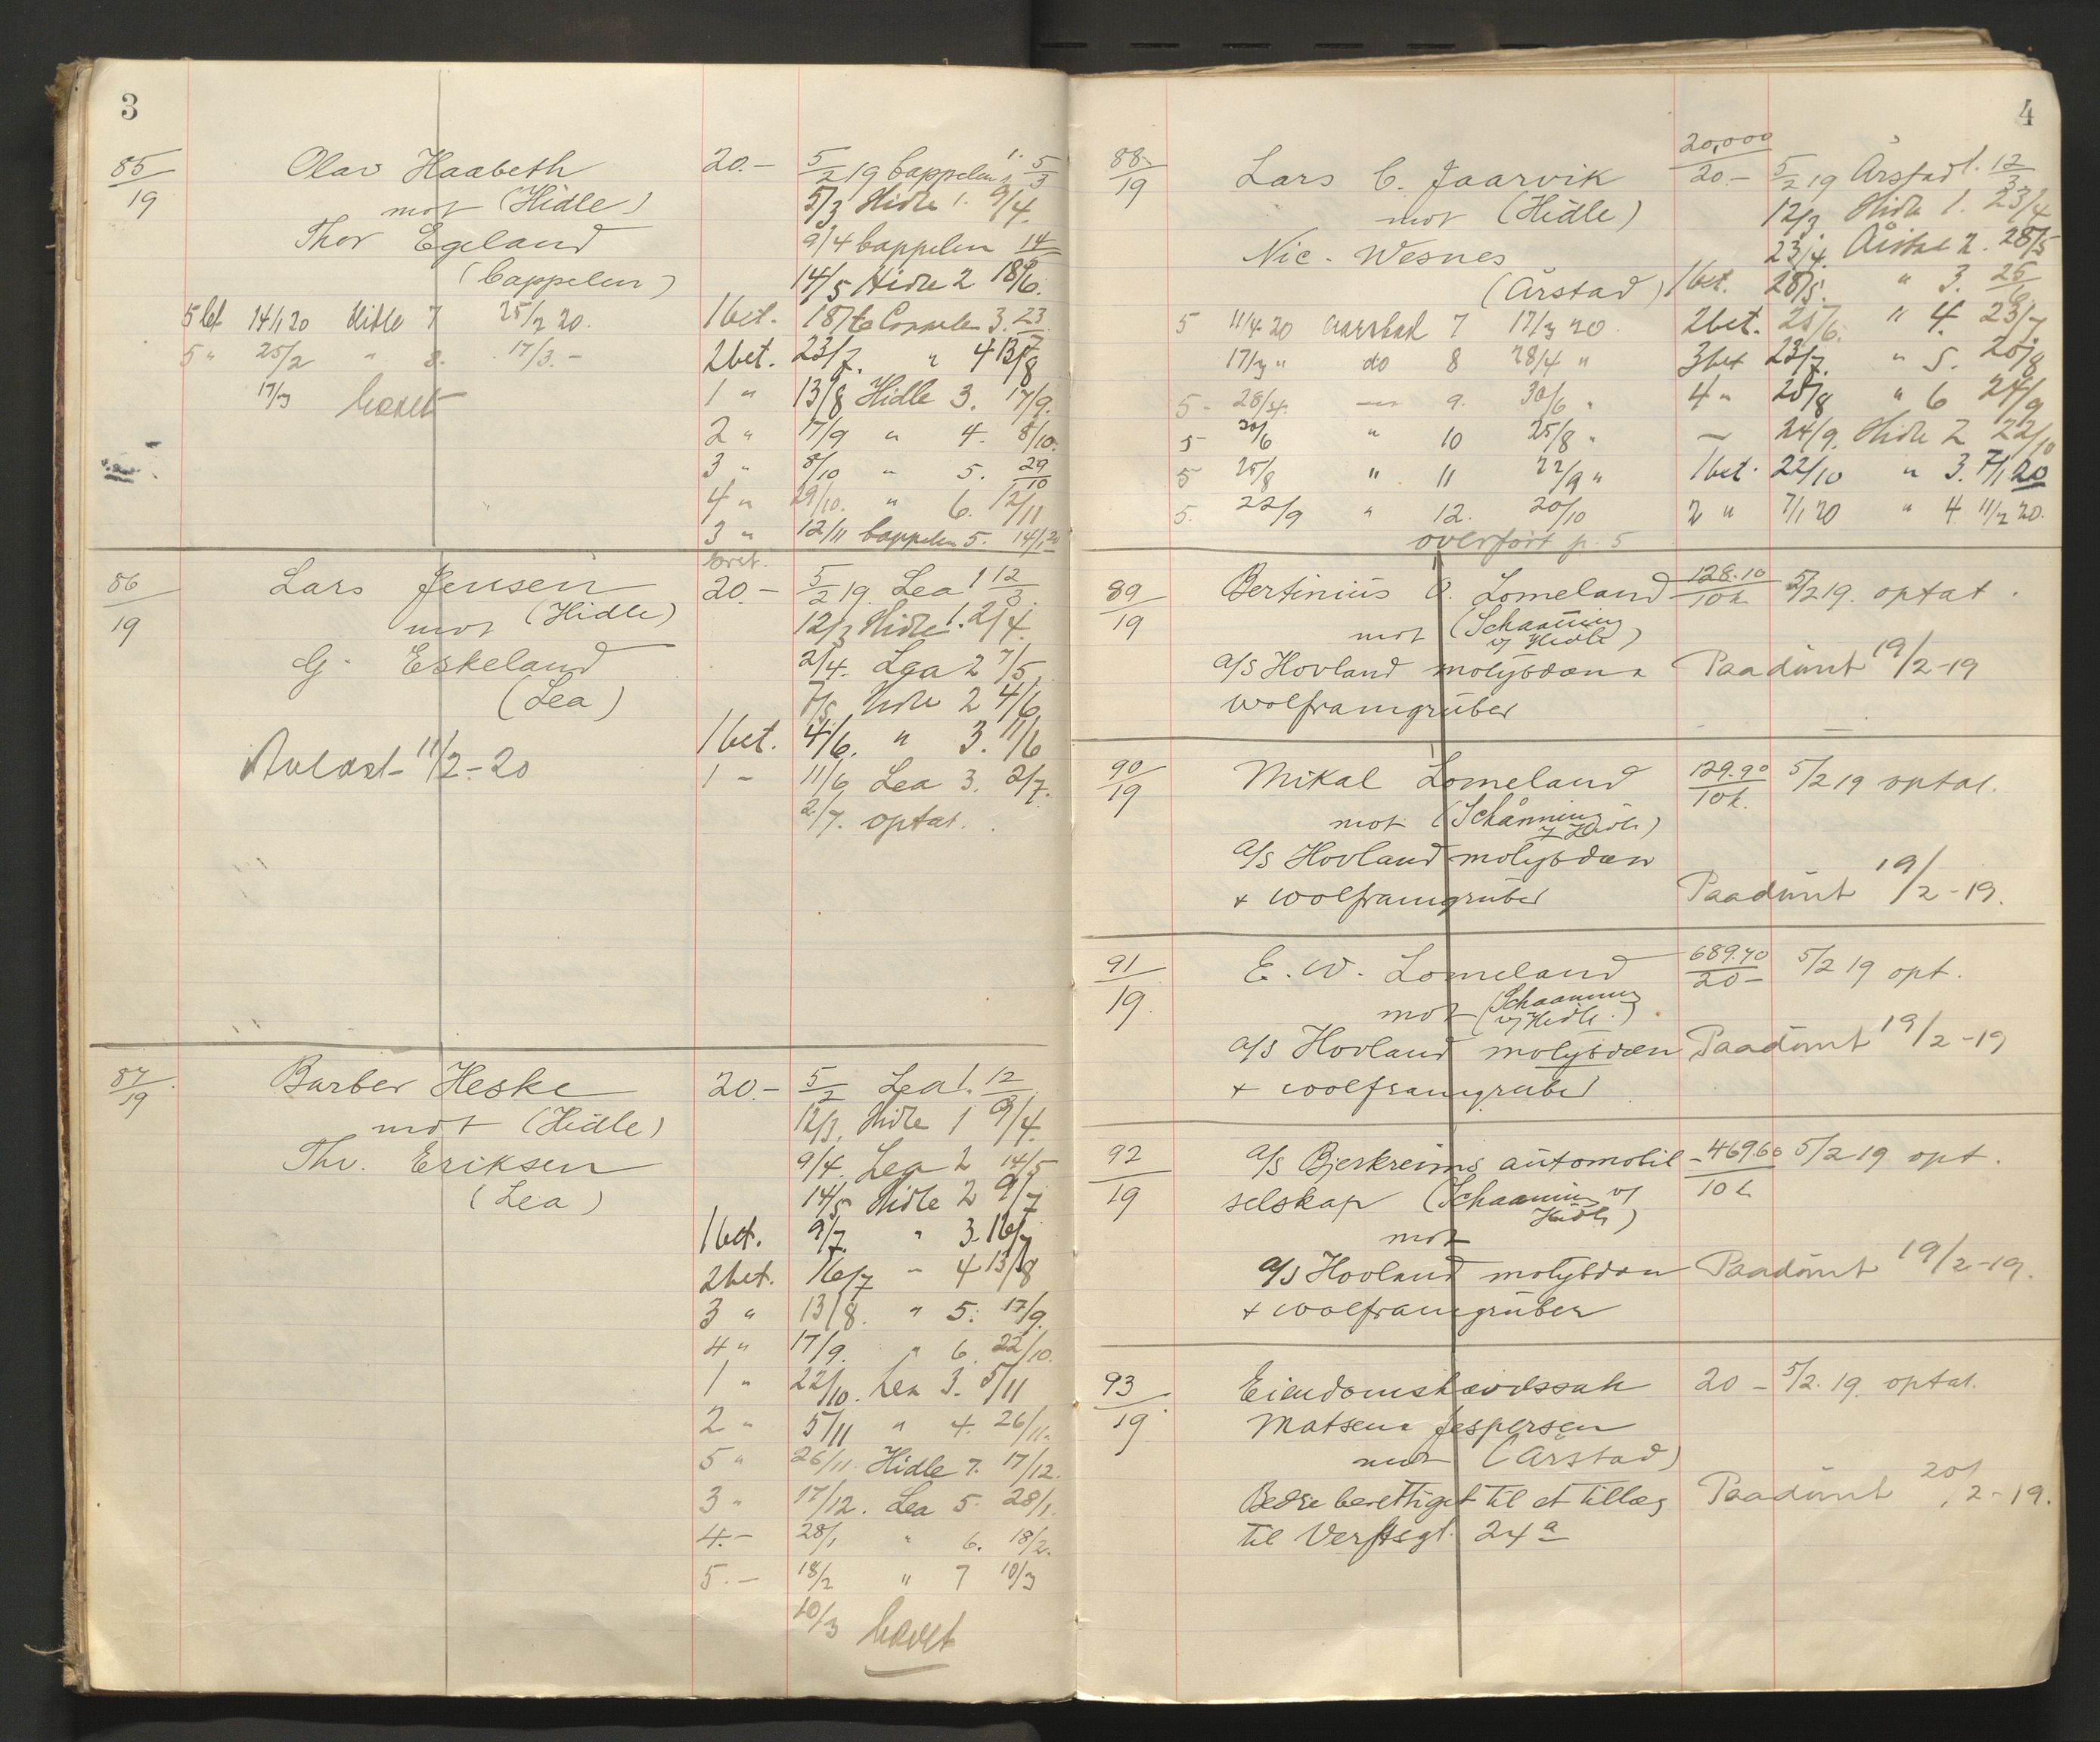 3
85/19 Olav Haabeth 20.- 5/2 19 Cappelen 1. 5/3
mot (Hidle) 5/3 Hidle 1. 9/4.
Thor Egeland 9/4 Cappelen 14/5
(Cappelen) 14/5 Hidle 2 18/6.
5 bet 14/1 20 Hidle 7 25/2 20. 1 bet. 18/6 Cappelen 3. 23/7
5 " 25/2 " 8. 17/3. - 2 bet. 23/7. " 4 13/8
17/3 hævet 1 " 13/8 Hidle 3. 17/9.
2 " 17/9 " 4. 8/10.
3 " 8/10 " 5. 29/10
4 " 29/10. " 6. 12/11
3 " 12/11 Cappelen 5. 14/1 20
86/19 Lars Jensen 20.- 5/2 19. Lea 1 12/3.
mot (Hidle) 12/3 Hidle 1. 2/4.
G. Eskeland 2/4. Lea 2 7/5.
(Lea) 7/5 Hidle 2 4/6
1 bet. 4/6. " 3. 11/6
Avlæst 11/2 - 20 1 - 11/6 Lea 3. 2/7.
2/7. optat.
87/19 Barber Heske 20.- 5/2 Lea 1. 12/3
mot (Hidle) 12/3. Hidle 1 9/4.
Thv. Eriksen 9/4. Lea 2 14/5
(Lea) 14/5 Hidle 2 9/7
1 bet. 9/7. " 3. 16/7
2 bet. 16/7 " 4 13/8
3 " 13/8. " 5. 17/9.
4 " 17/9. " 6. 22/10.
1 " 22/10. Lea 3. 5/11
2 " 5/11 " 4. 26/11.
5 " 26/11. Hidle 7. 17/12.
3 " 17/12. Lea 5. 28/1.
4. - 28/1 " 6. 18/2.
5. - 18/2 " 7 10/3
10/3 hævet
4
88/19 Lars C. Jaarvik 20,000/20.- 5/2 19 Årstad 1. 12/3
mot (Hidle) 12/3 Hidle 1. 23/4
Nic. Wesnes 23/4. Årstad 2. 28/5
(Årstad) 1 bet. 28/5. " 3. 25/6
5 11/2 20 Aarstad 7 17/3 20 2 bet. 25/6. " 4. 23/7
17/3 " do 8 28/4 " 3 bet 23/7. " 5. 20/8
5 - 28/4. — 9. 30/6 " 4 " 20/8 " 6 24/9
5 - 30/6 " 10 25/8 " — 24/9. Hidle 2 22/10
5 25/8 " 11 22/9 " 1 bet. 22/10 " 3. 7/1 20
5. 22/9 " 12. 20/10 2 " 7/1 20 " 4. 11/2 20.
overført p. 5
89/19 Bertinius O. Lomeland 128.10/10 k 5/2 19. optat.
mot (Schaaning
v/ Hidle)
A/S Hovland molybdæn & Paadømt 19/2 - 19
wolframgruber
90/19 Mikal Lomeland 129.90/10 k. 5/2 19 optat.
mot (Schånning
v/ Hidle)
A/S Hovland molybdæn
+ wolframgruber Paadømt 19/2 - 19.
91/19. E. W. Lomeland 689.70/20 - 5/2 19 opt.
mot (Schaanning
v/ Hidle.)
A/S Hovland molybdæn Paadømt 19/2 - 19
+ wolframgruber
92/19 A/S Bjerkreims automobil- 469.60/10 k 5/2 19 opt.
selskap (Schaaning v/
Hidle)
mot
A/S Hovland molybdæn Paadømt 19/2 - 19.
+ wolframgruber
93/19. Eiendomshævdssak 20 - 5/2. 19. optat.
Matsen & Jespersen
mot (Årstad)
Bedre berettiget til et tillæg Paadømt 20/2 - 19.
til Verftsgt. 24a